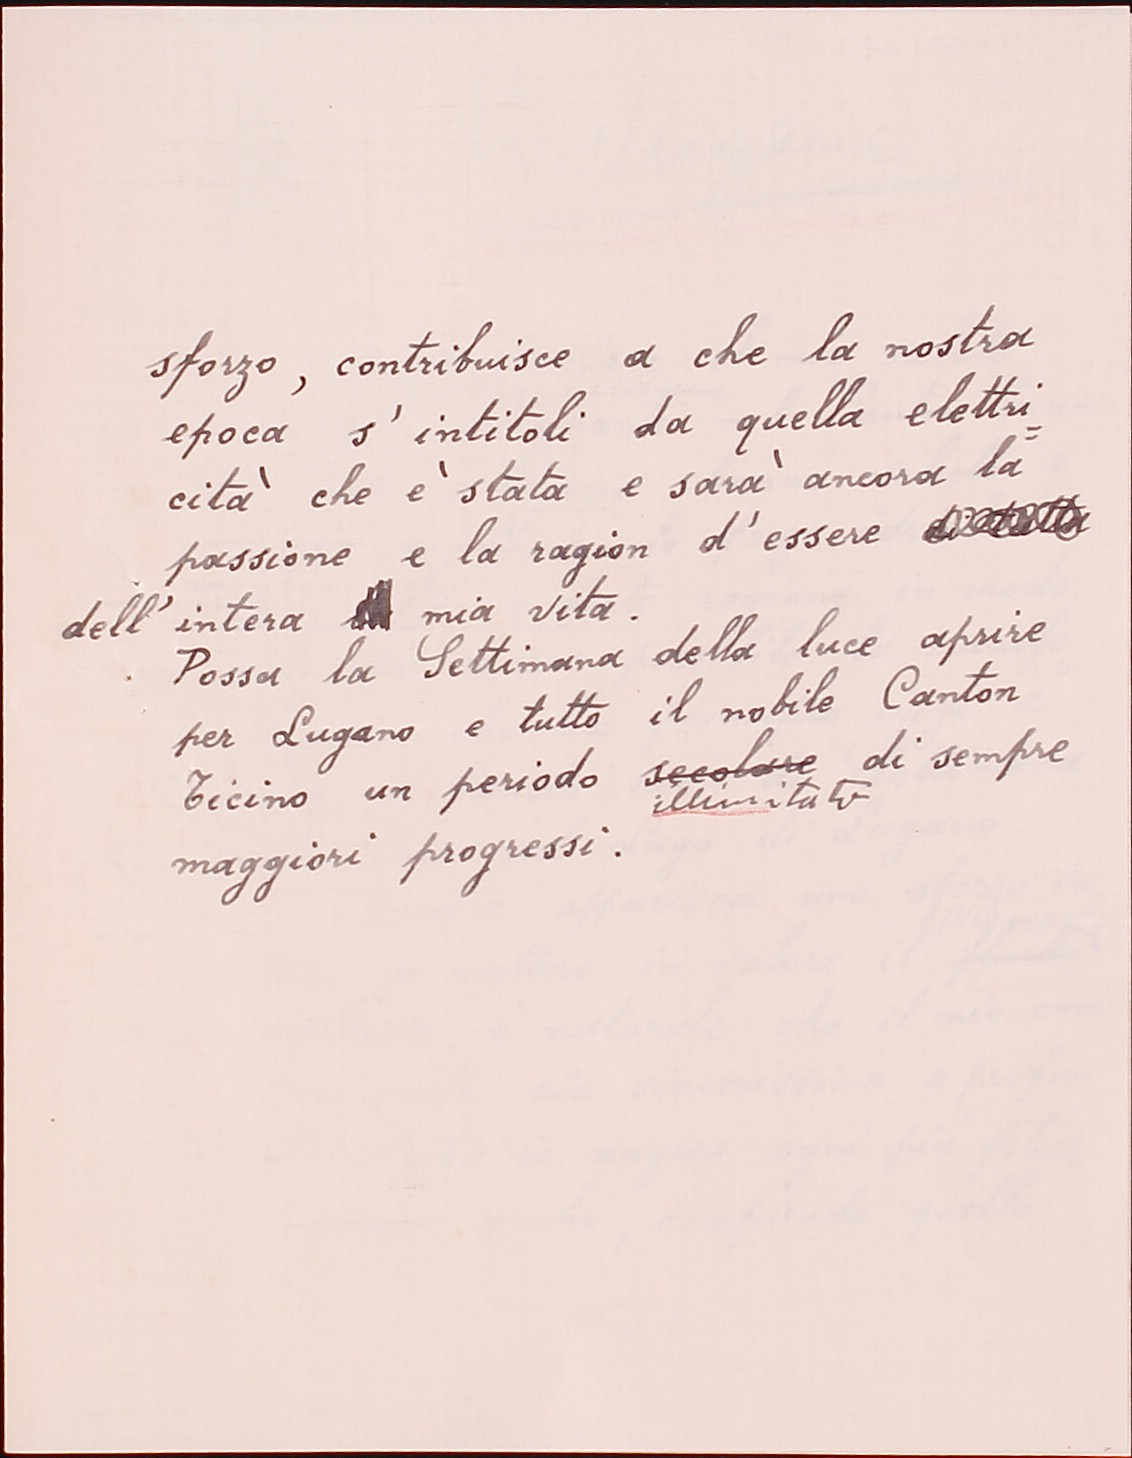 sforzo, contribuisce a che la nostra
epoca s'intitoli da quella elettri=
cità che è stata e sarà ancora la
passione e la ragion d'essere di tutta
dell'intera mia vita.
Possa la Settimana della luce aprire
per Lugano e tutto il nobile Canton
Ticino un periodo secolare di sempre
illimitato
maggiori progressi.